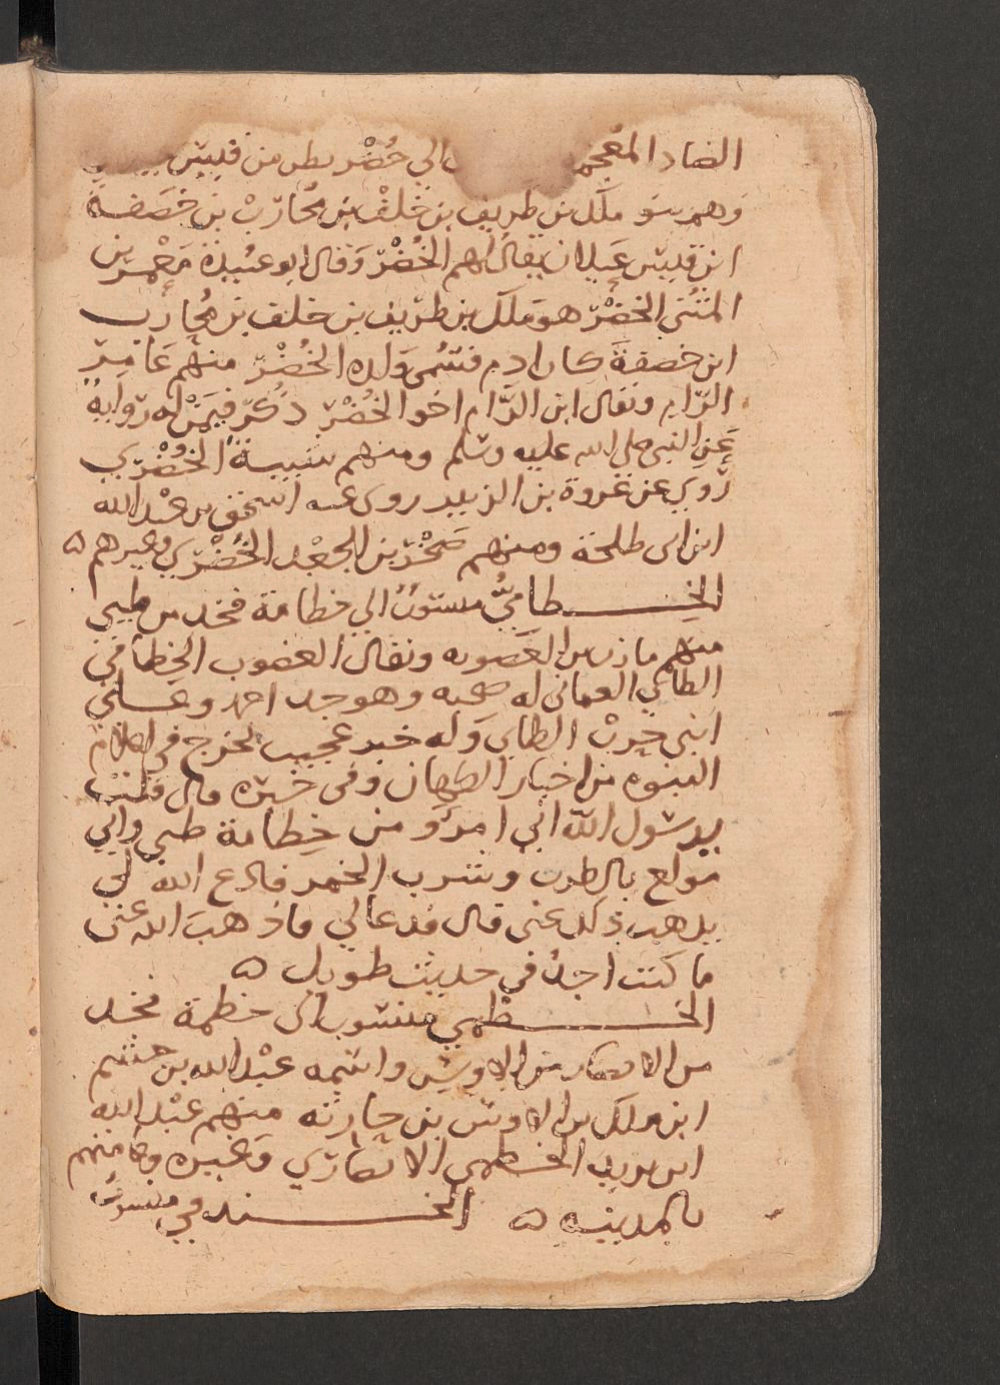 الضاد المعجم الي خُضْر بطن من قيس
وهم بنو ملك بن طريف بن خلف بن محارب بن خصفة
ابن قيس عيلان يقال لهم الخُضْر وقال ابو عبيدة معمر بن
المثنى الخضر هو ملك بن طريف بن خلف بن محارب
ابن خصفة كان ادم فسمى ولده الخُضْر منهم عامر
الرَّام ويقال ابن الرَّام اخو الخُضْر ذكر فيمن له رواية
عن النبي صلى الله عليه وسلم ومنهم شيبة الخُضْري
روي عن عروة بن الزبير روى عنه اسحق بن عبد الله
ابن ابى طلحة ومنهم صخر بن الجعد الخُضْري وغيرهم ۵
الخطاميُّ منسوبٌ الي خطامة فخذ من طيي
منهم مازن بن الغضوبه ويقال الغضوب الخطامي
الطاي العماني له صحبه وهو جد احمد وعلي
ابني حرب الطاي وله خبر عجيب يخرج في اعلام
النبوه من اخبار الكهان وفي خبره قال قلت
يرسول الله اني امرؤ من خطامة طي واني
مولع بالطرب وشرب الخمر فادع الله لي
يذهب ذلك عني قال فدعا لي فاذهب الله عني
ما كنت اجدُ في حديث طويل ۵
الخطمي منسوب الى خطمة فخذ
من الانصار من الاوس واسمه عبد الله بن جشم
ابن ملك بن الاوس بن حارثه منهم عبد الله
ابن يزيد الخطمي الانصاري وغيره وكان منهم
بالمدينه ۵ الخندفي منسوبٌ